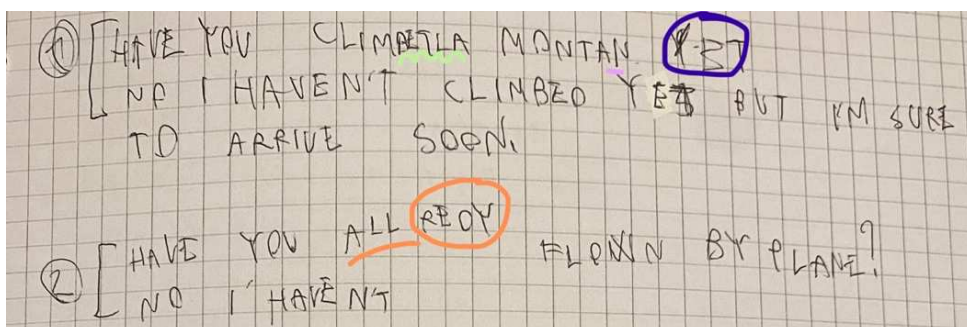 ① HAVE YOU CLIMBETLA MONTAN YET
NO I HAVEN'T CLIMBED YET BUT I'M SURE
TO ARRIVE SOON.
② HAVE YOU ALL REDY FLOWN BY PLANE?
NO I HAVEN'T